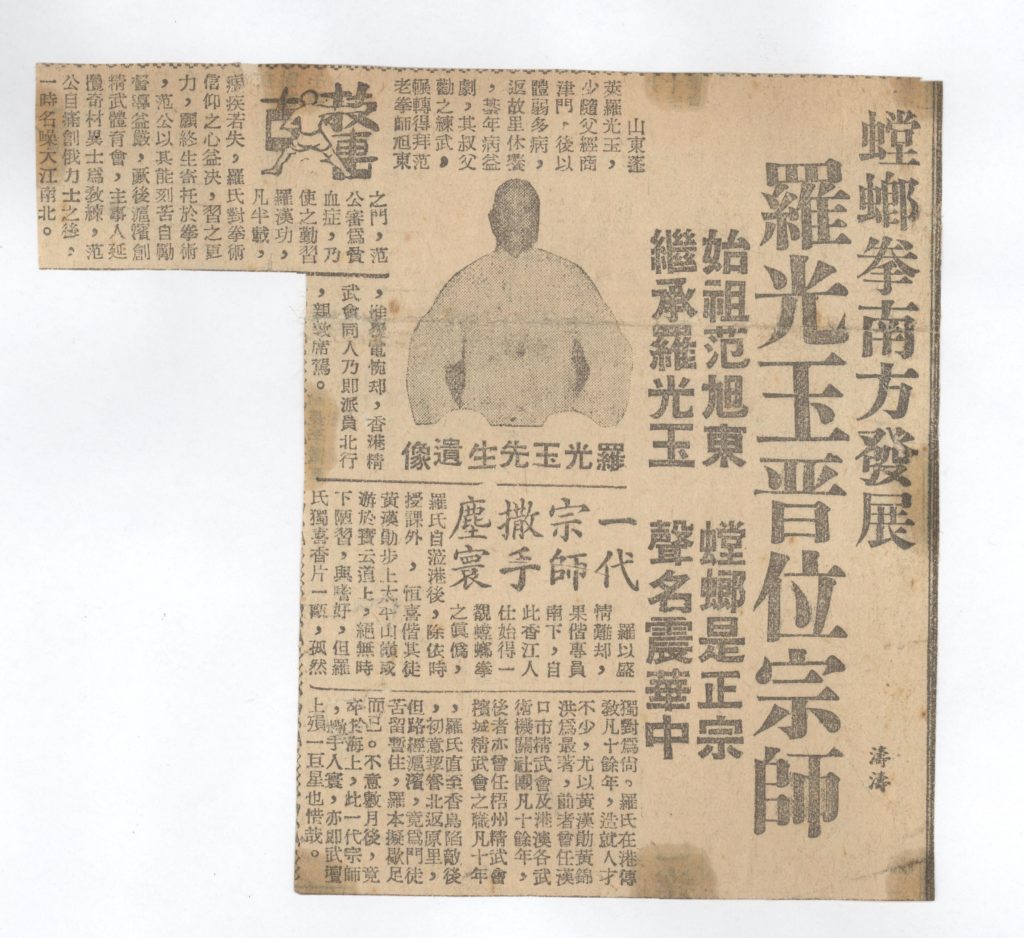 螳螂拳南方發展
羅光玉晋位宗師
濤濤
始祖范旭東 螳螂是正宗
繼承羅光玉 聲名震華中
山東蓬
萊羅光玉,
少隨父經商
津門,後以
體弱多病,
返故里休養
,某年病益
劇,其叔父
勸之練武,
輾轉得拜范
老拳師旭東
之門,范
公審爲貧
血症,乃
使之勤習
羅漢功,
凡半載,
疾若失,羅氏對拳術
信仰之心益决,習之更
力,願終生寄托於拳術
,范公以其能刻苦自勵
督導益嚴,厥後滬濱創
精武體育會,主事人延
攬奇材異士爲教練,范
公自痛創俄力士之後,
一時名噪大江南北。
羅光玉先生遺像
,香港精
武會同人乃即派員北行
,親致席鴛。
一代
宗師
撒手
塵寰
羅以盛
情難却,
果偕專員
南下,自
此香江人
仕始得一
觀螳螂拳
之眞僞,
羅氏自蒞港後,除依時
授課外,恒喜偕其徒
黃漢勛步上太平山嶺或
游於寶云道上,絕無時
下陋習,與嗜好,但羅
氏獨喜香片一甌,孤然
獨對爲尙。羅氏在港傳
敎凡十餘年,造就人才
不少,尤以黃漢勛黃錦
洪爲最著,前者曾任漢
口市精武會及港澳各武
術機關社團凡十餘年,
後者亦曾任梧州精武會
檳城精武會之職凡十年
,羅氏直至香島陷敵後
,初意挈眷北返原里,
但路經滬濱,竟爲門徒
苦留暫住,羅本擬歇足
而已。不意數月後,竟
卒於海上,此一代宗師
,撒手人寰,亦即武壇
上殞一巨星也惜哉。